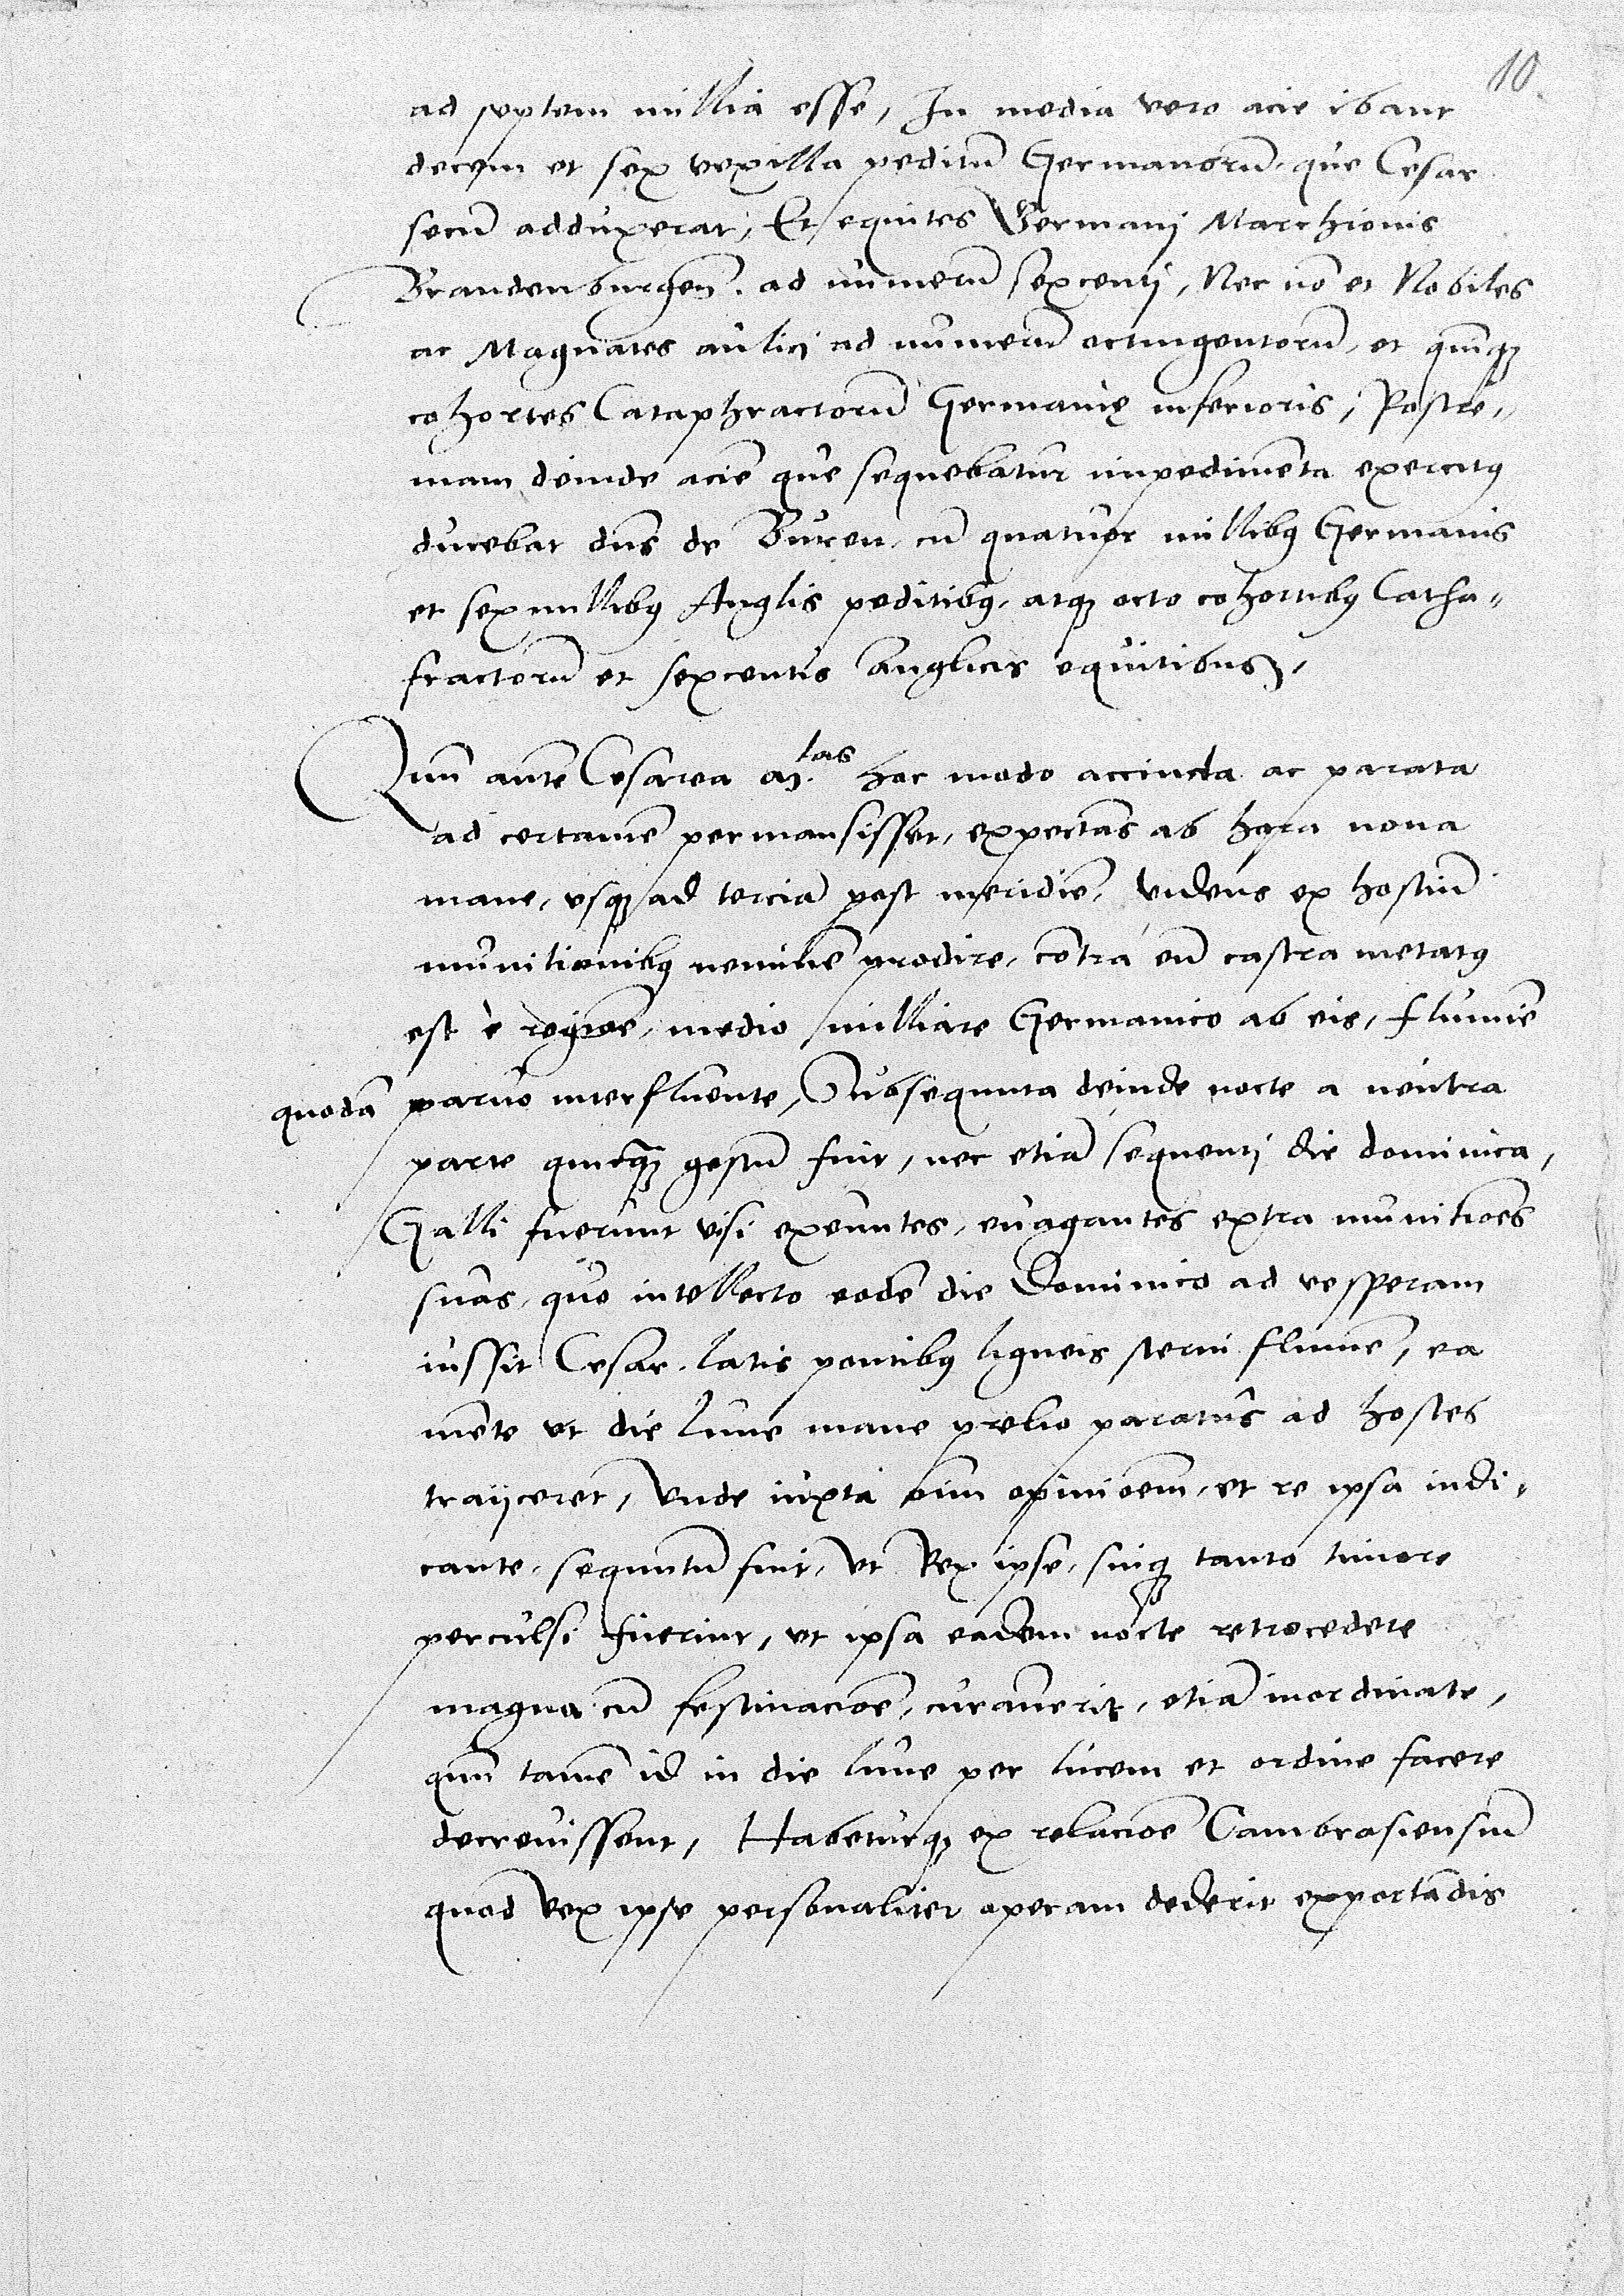 10.
ad septem millia esse, In media vero acie ibant
decem et sex vexilla peditũ Germanorũ, que Cesar
secũ adduxerat, Et equites Germanj Marchionis
Brandenburgeñ. ad numerũ sexcentj, Nec nõ et Nobiles
ac Magnates aulicj ad numerũ octingentorũ, et quinqꝫ
cohortes Cataphractorũ Germanię inferioris, Postre-
mam deinde aciẽ que sequebatur impedimẽta exercitꝰ
ducebat dñs de Buren, cũ quatuor millibꝰ Germanis
et sex millibꝰ Anglis peditibꝰ, atqꝫ octo cohortibꝰ Catha-
fractorũ et sexcentis Anglicis equitibus,
Quũ autẽ Cesarea M.tas hoc modo accincta ac parata
ad certamẽ permansisset, expectãs ab hora nona
mane, usqꝫ ad terciã post meridiẽ, videns ex hostiũ
munitionibꝰ neminẽ prodire, cõtra eũ castra metatꝰ
est è regiõe, medio milliare Germanico ab eis, flumie͂
quodã paruo interfluente, Subsequuta deinde nocte a neutra
parte quicqꝫ gestũ fuit, nec etiã sequentj die dominica,
Galli fuerunt visi exeuntes, euagantes extra munitiões
suas, quo intellecto eodẽ die Dominico ad vesperam
iussit Cesar, latis pontibꝰ ligneis sterni flumẽ, ea
mẽte ut die lune mane prelio paratus ad hostes
traijceret, Vnde iuxta oĩm opinioẽm, et re ipsa indi-
cante, sequutũ fuit, Vt Rex ipse, suiqꝫ tanto timore
perculsi fuerint, ut ipsa eadem nocte retrocedere
magna cũ festinaciõe, curauerit, etiã inordinate,
quũ tamẽ id in die lune per lucem et ordine facere
decreuissent, Habeturqꝫ ex relaciõe Cambrasiensiũ
quod rex ipse personaliter operam dederit exportãdis